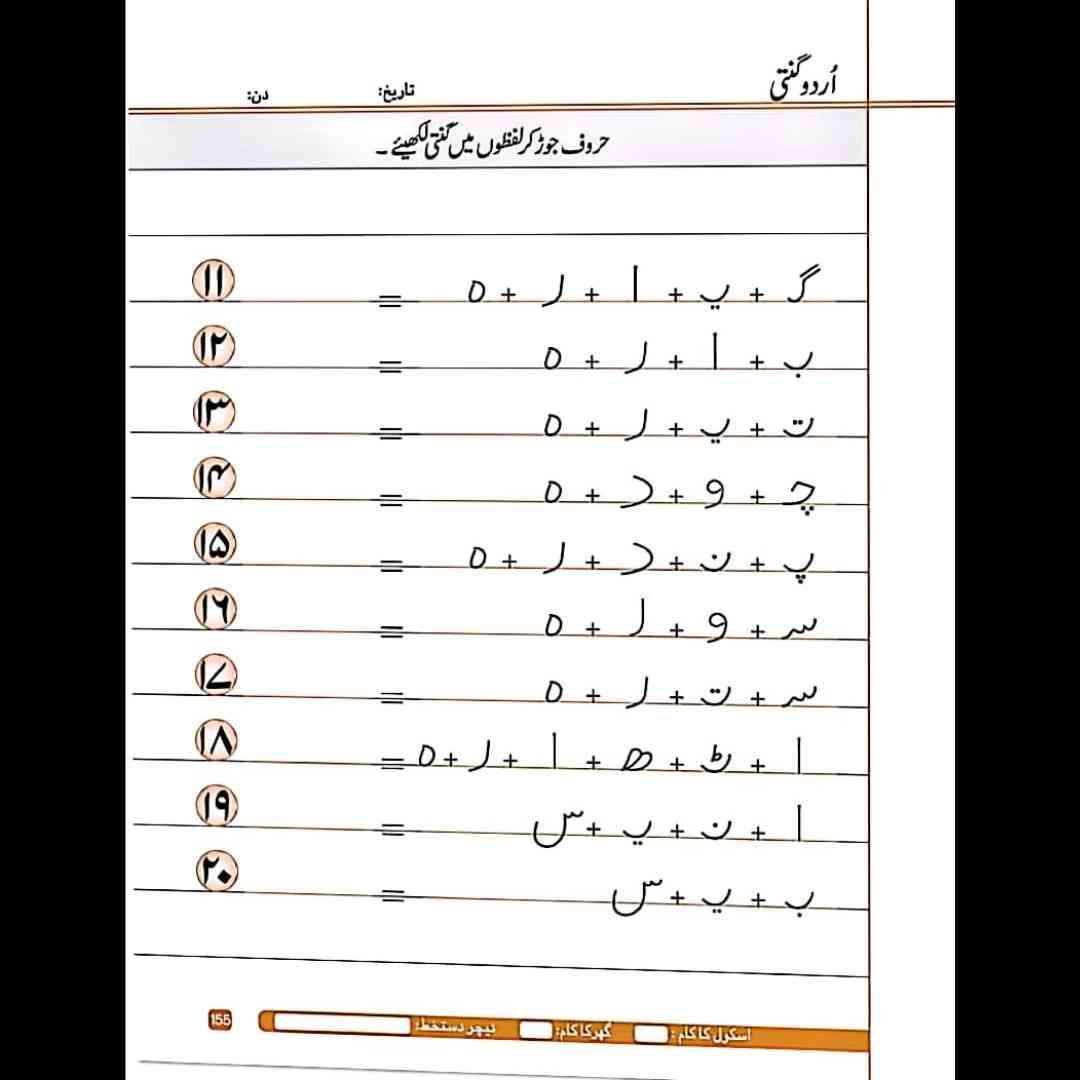 اُردو گنتی
تاریخ: دن:
حروف جوڑ کر لفظوں میں گنتی لکھیئے ۔
گ + ی + ا + ر + ہ = ۱۱
ب + ا + ر + ہ = ۱۲
ت + ی + ر + ہ = ۱۳
چ + و + د + ہ = ۱۴
پ + ن + د + ر + ہ = ۱۵
س + و + ل + ہ = ۱۶
س + ت + ر + ہ = ۱۷
ا + ٹ + ھ + ا + ر + ہ = ۱۸
ا + ن + ی + س = ۱۹
ب + ی + س = ۲۰
اسکول کا کام : گھر کا کام: ٹیچر دستخط: 155